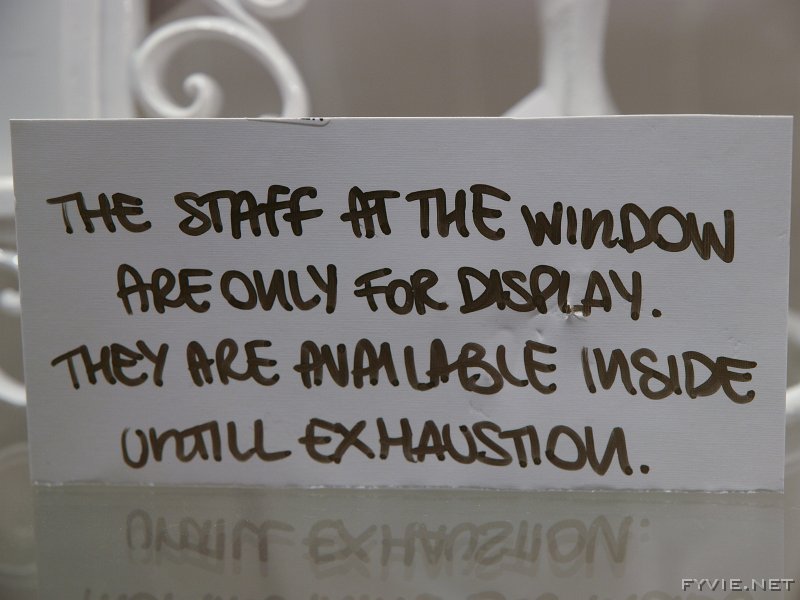 THE STAFF AT THE WINDOW
ARE ONLY FOR DISPLAY.
THEY ARE AVAILABLE INSIDE
UNTILL EXHAUSTION.
FYVIE.NET